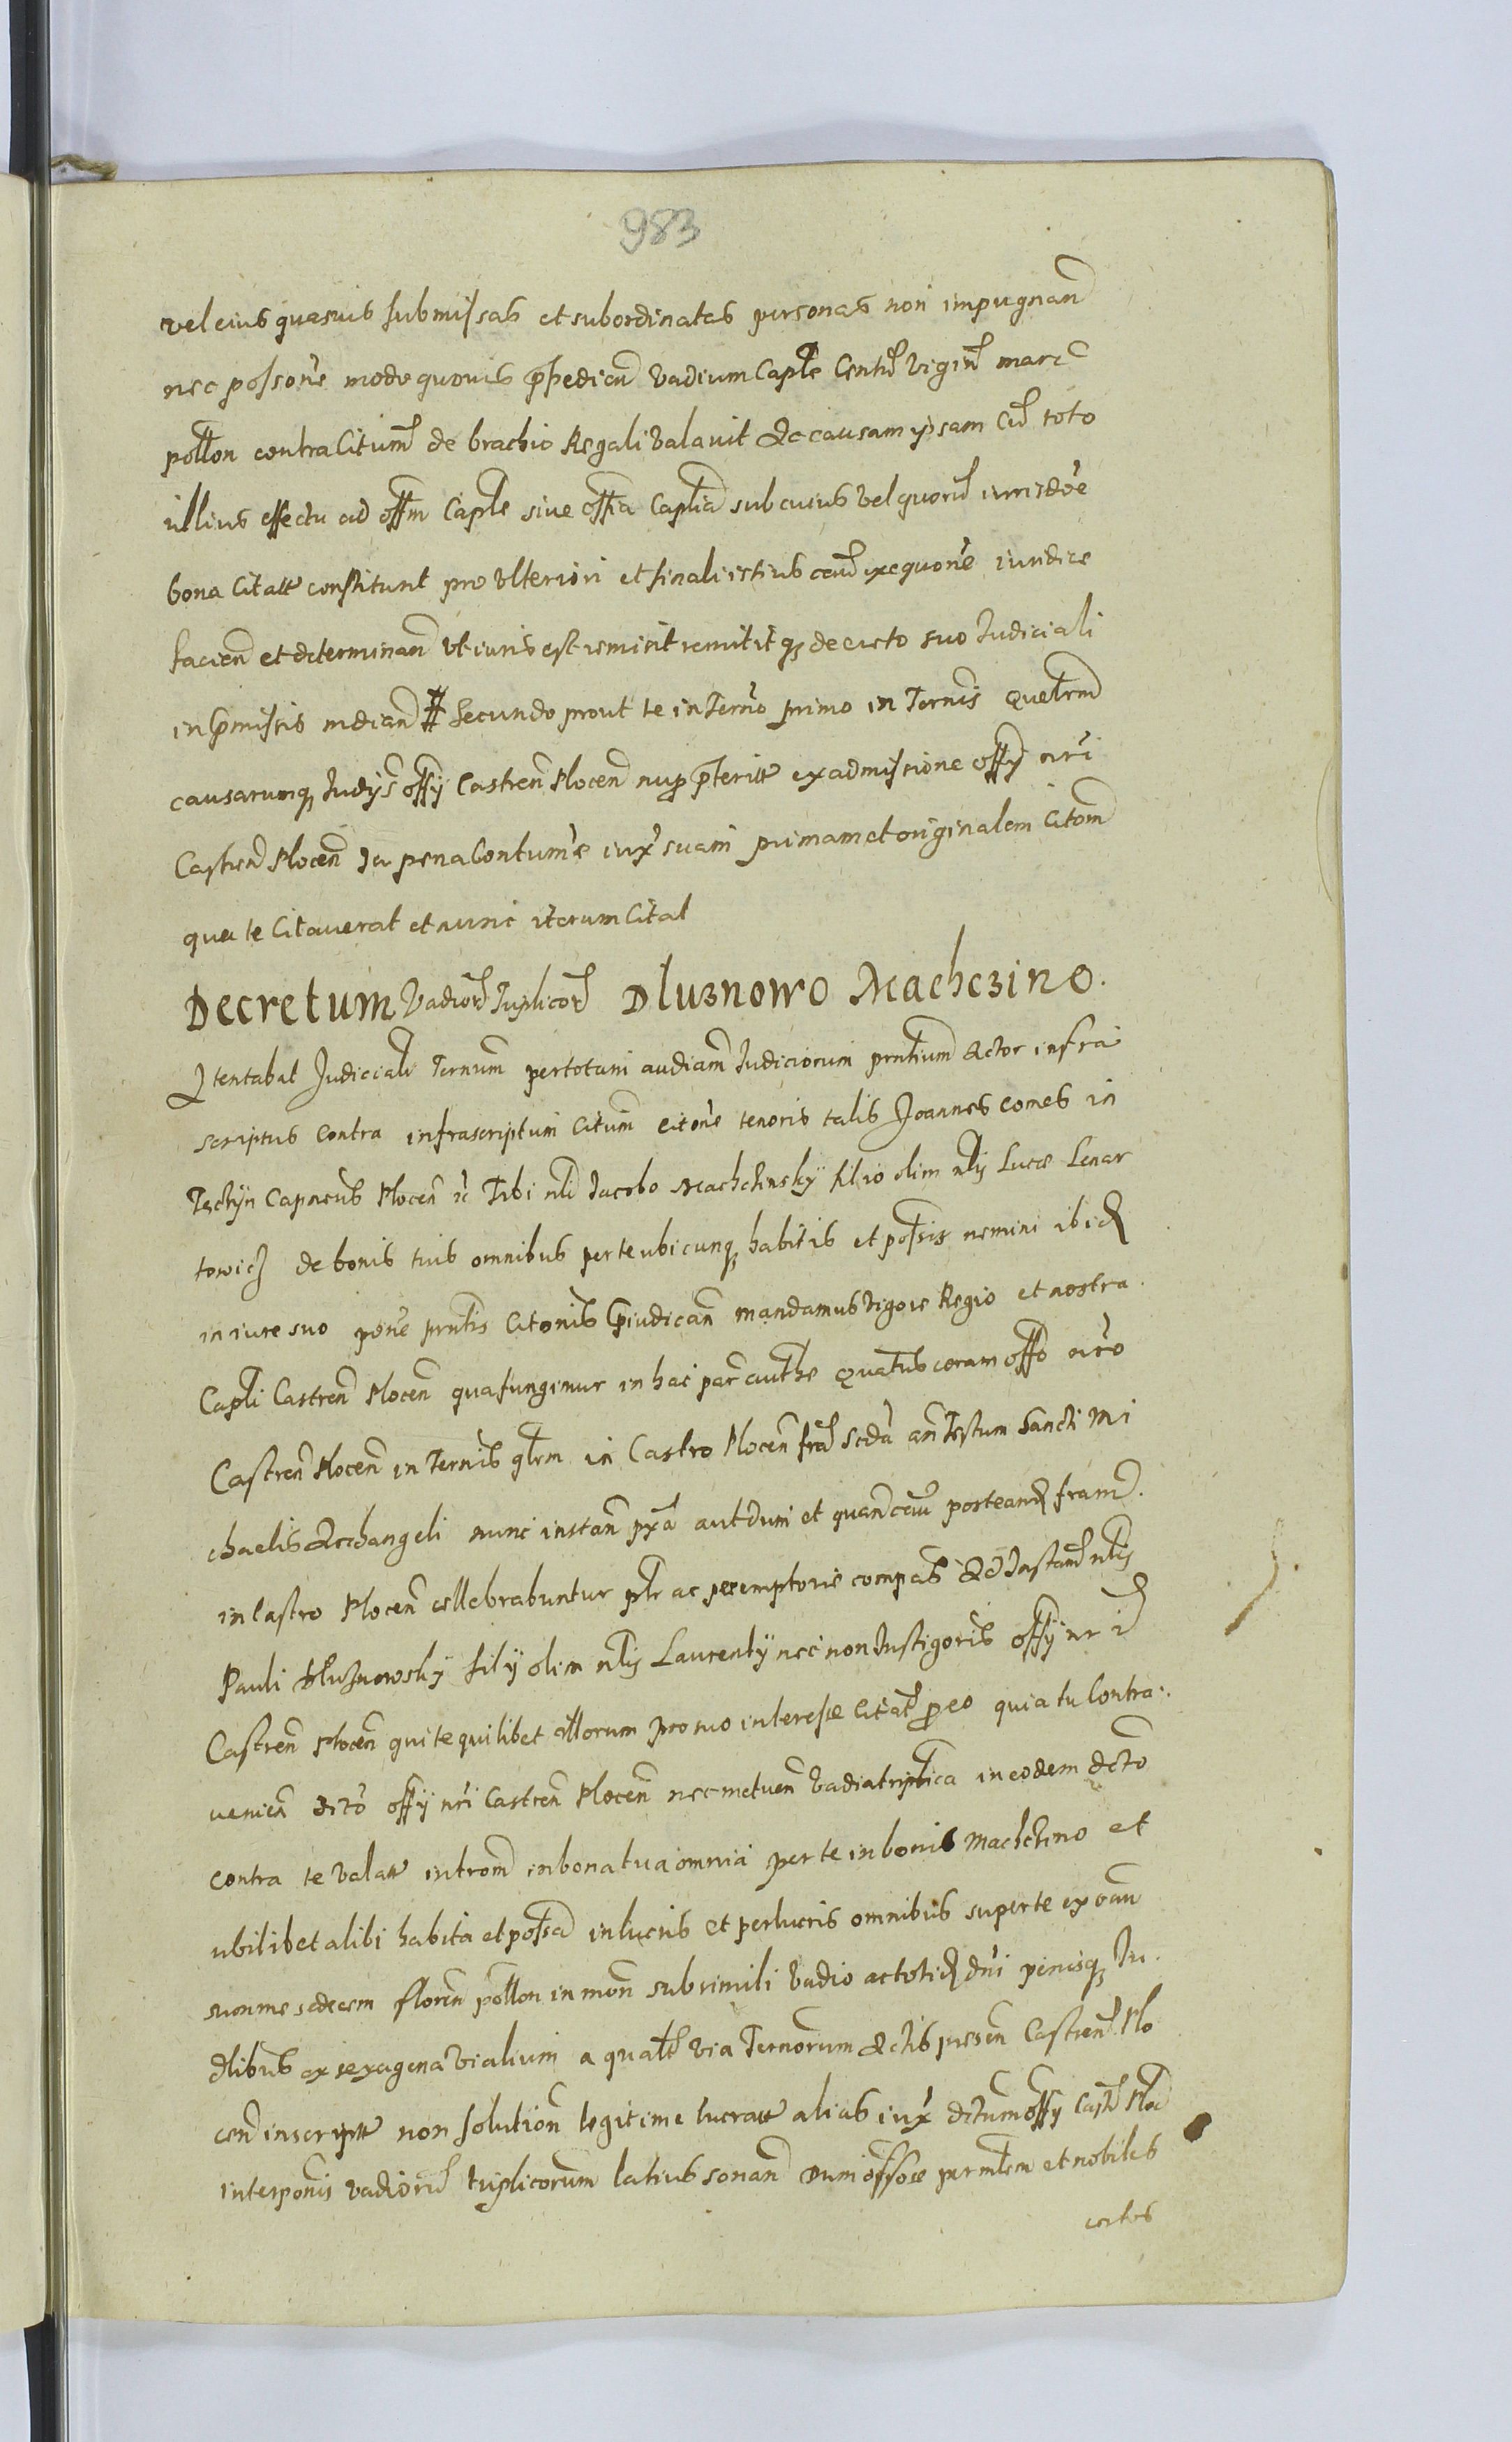 983
vel eius quasvis submissas et subordinatas personas non impugnand
nec possone modo quovis pṗedicn vadium Capłe Centū vigin marc
pollon contra Citum de brachio Regali valavit Ac causam ipsam cū toto
illius effectu ad offm Caple sive offia Caplia sub cuius vel quorū iurisdōe
bona Citatt consistunt pro ulteriori et finali istius causae exequone iuridice
facien et determinan ut iuris est remisit remititq decreto suo Judiciali
in pmissis median # Secundo prout te in Termo primo in Ternis Querelrm
causarumq Judijs offy Castren Plocen nup pteritt ex admissione offy nri
Castren Plocen in pena Contume iux suam primam et originalem Citom
qua te Citaverat et nunc iterum Citat
Decretum Vadiorū Triplicorū Dluznowo Machczino.
Attentabat Judicialr Ternum per totam audiam Judiciorum prntium Actor infra
scriptus contra infrascriptum Citum citone tenoris talis Joannes comes in
Tęczyn Capneus Plocen ic Tibi nli Jacobo Machczinsky filio olim nlis Lucæ Lenar
towicz de bonis tuis omnibus per te ubicunq habitis et possis nemini ibid
in iure suo pone prntis Citonis piudican mandamus vigore Regio et nostra
Capli Castren Plocen qua fungimur in hac par authe Quatus coram offo nro
Castren Plocen in Ternis qlrm in Castro Plocen fra scda an Festum Sancti Mi
chaelis Archangeli nunc instan pxa aut dum et quan posteand fram
in Castro Plocen cellebrabuntur plr ac peremptorie compas Ad Instam nlis
Pauli Dluznowsky fily olim nlis Laurenty nec non Instigoris offy nri
Castren Plocen qui te quilibet illorum pro suo interesse Citat p eo quia tu Contra
venien dcto offy nri Castren Plocen nec metuen vadia triplica in eodem dcto
contra te valatt introm in bona tua omnia per te in bonis Machczino et
ubilibet alibi habita et possa in lucris et perlucris omnibus super te ex
summe sedecem floren pollon in mon sub simili vadio ac totid dni penisq Ju
dlibus ex sexagena vialium a qualt via Ternorum Actis pssen Castren Plo
cen inscriptt non solution legitime lucratt alias iux dctum offy Castr Ploc
interponis vadiorū triplicorum latius sonan Dum offose per mlrem et nobiles
certos